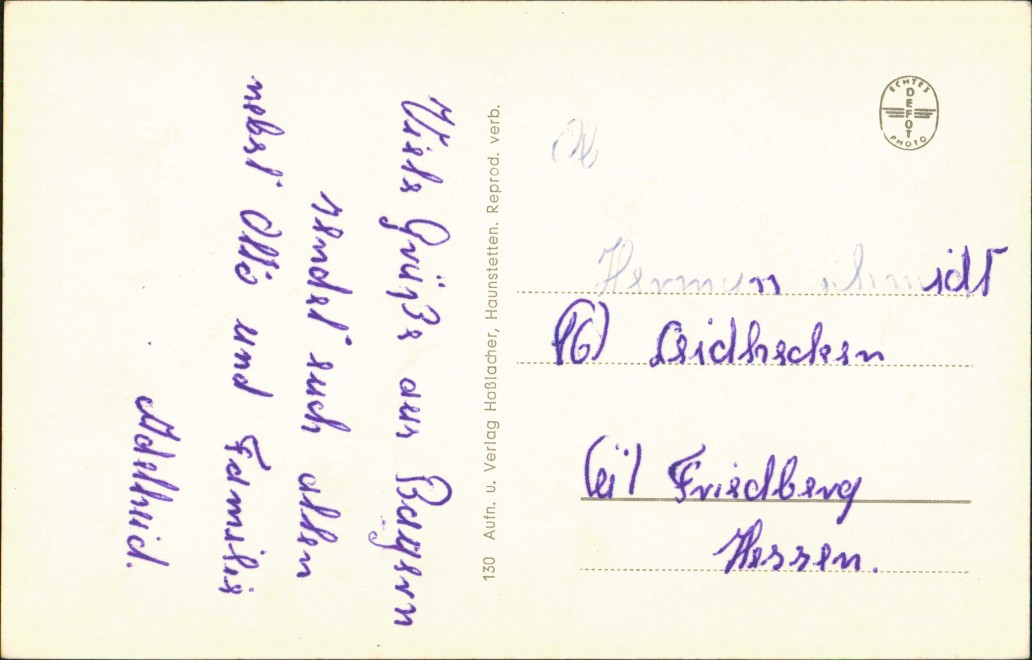 Viele Grüße aus Bayern
sendet euch allen
nebst Otto und Familie
Adelheid.
130 Aufn. u. Verlag Haßlacher, Haunstetten. Reprod. verb.
ECHTES
DEFOT
PHOTO
Herman Schmidt
(16) Leidhecken
Friedberg
Hessen.